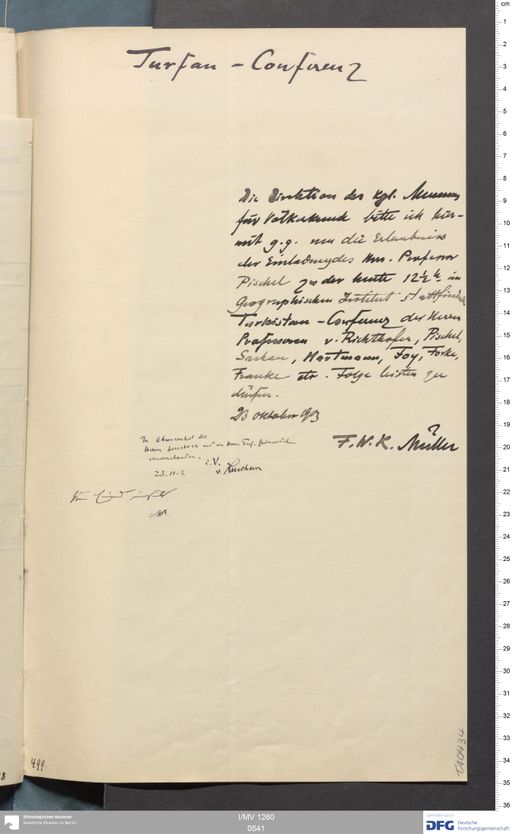 Turfan - Conferenz
Die Direktion des Kgl. Museums
für Völkerkunde bitte ich hier-
mit g.g. um die Erlaubniss
der Einladung des Hrn. Professor
Pischel zu der heute 12½ h. im
Geographischen Institut stattfindenden
Turkistan - Conferenz der Herren
Professoren v. Richthofen, Pischel,
Sachau, Hartmann, Foy, Forke,
Franke etc. Folge leisten zu
dürfen.
23 Oktober 1903
F. W. K. Müller
In Abwesenheit des
Herrn
einverstanden.
i. V.
23.10.3
v. Luschan
499
T10434
I/MV 1260
0541
Ethnologisches Museum
Staatliche Museen zu Berlin
gefördert durch
DFG Deutsche
Forschungsgemeinschaft
cm
1
2
3
4
5
6
7
8
9
10
11
12
13
14
15
16
17
18
19
20
21
22
23
24
25
26
27
28
29
30
31
32
33
34
35
36